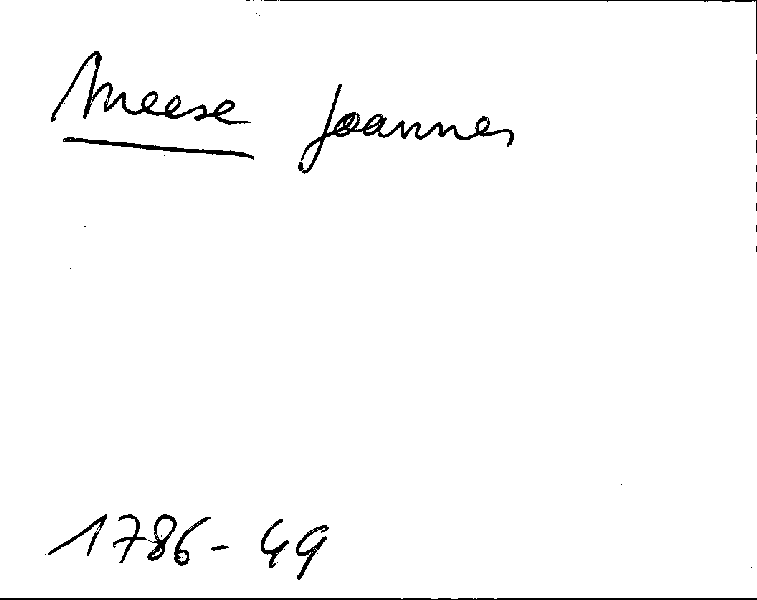 Meese Joannes
1786-49